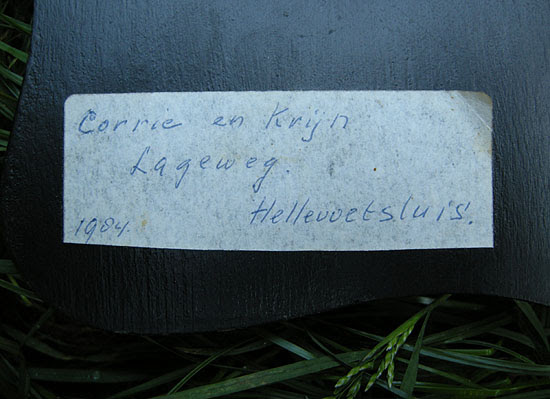 Corrie en Krijn
Lageweg.
Hellevoetsluis.
1984.